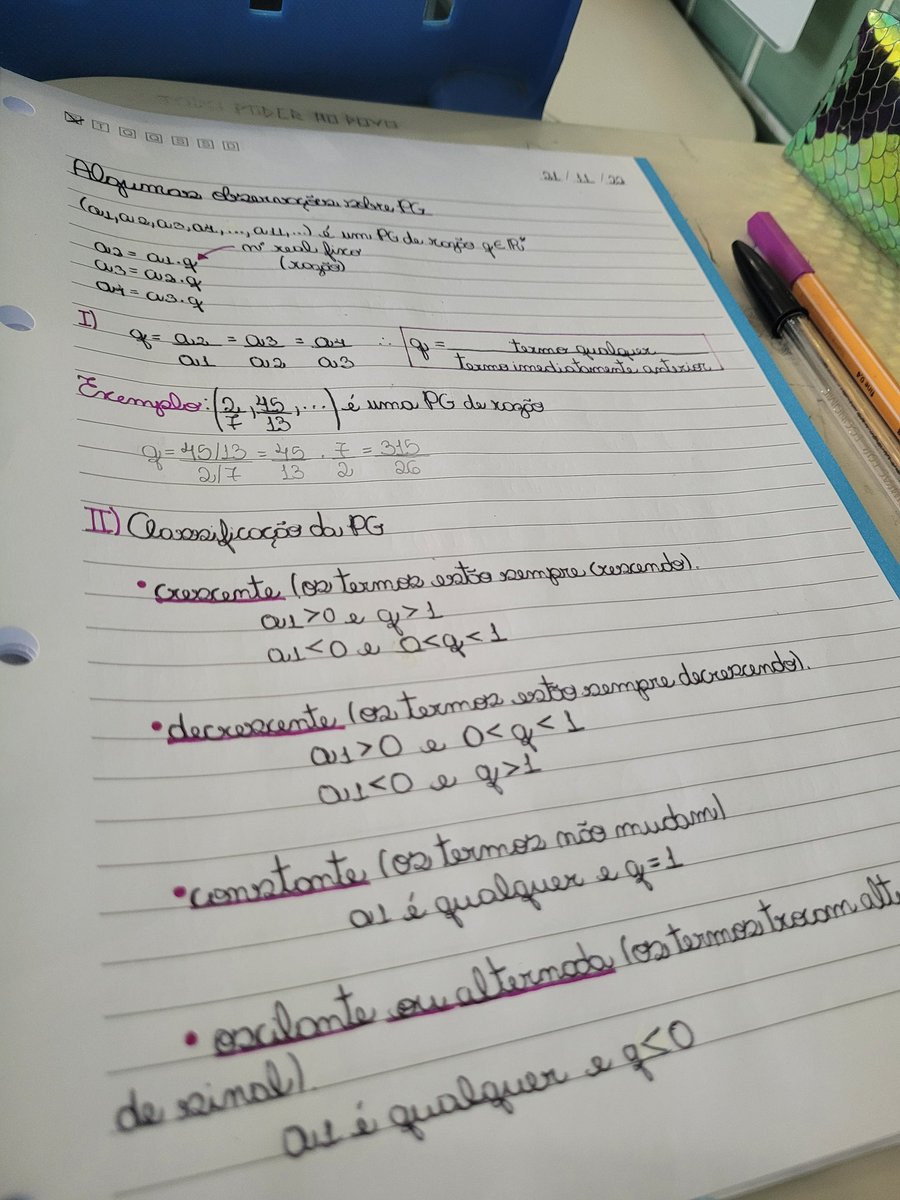 T Q Q S S D
21 / 11 / 22
Algumas observações sobre PG
(a1, a2, a3, a4, ..., a11, ...) é um PG de razão q∈ℝ*
a2 = a1 . q nº real fixo
a3 = a2 . q (razão)
a4 = a3 . q
I)
q = a2 = a3 = a4 ∴ q = termo qualquer
a1 a2 a3 termo imediatamente anterior
Exemplo: (2/7, 45/13, ...) é uma PG de razão
q = 45/13 = 45 . 7 = 315
2/7 13 2 26
II) Classificação da PG
• crescente (os termos estão sempre crescendo).
a1 > 0 e q > 1
a1 < 0 e 0 < q < 1
• decrescente (os termos estão sempre decrescendo).
a1 > 0 e 0 < q < 1
a1 < 0 e q > 1
• constante (os termos não mudam)
a1 é qualquer e q = 1
• oscilante ou alternada (os termos trocam alt
de sinal).
a1 é qualquer e q < 0